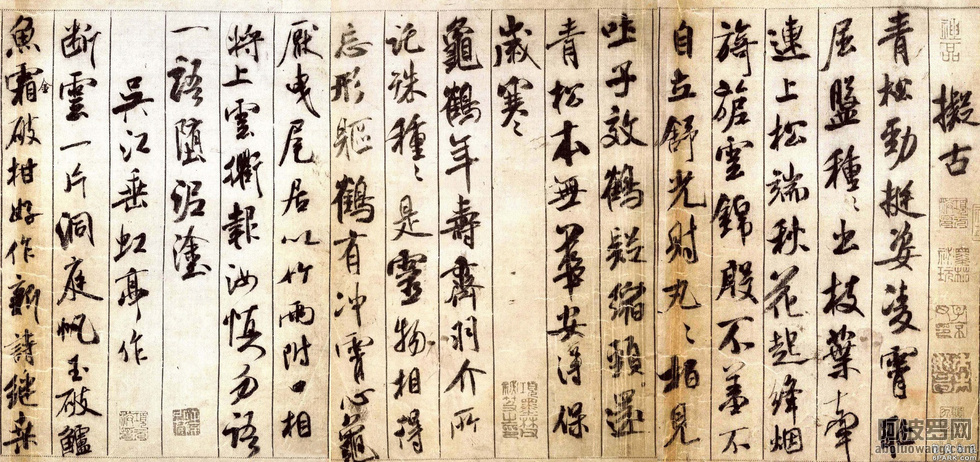 擬古
青松勁挺姿凌霄恥
屈盤種種出枝葉牽
連上松端秋花起絳烟
旖旎雲錦殷不羞不
自立舒光射丸丸柏見
吐子效鶴疑縮頸還
青松本無華安得保
歲寒
龜鶴年壽齊羽介所
託殊種種是靈物相得
忘形軀鶴有沖霄心龜
厭曳尾居以竹兩附口相
將上雲衢報汝慎勿語
一語墮泥塗
吳江垂虹亭作
断雲一片洞庭帆玉破鱸
魚霜金破柑好作新詩繼桑
阿波罗网
aboluowang.com
6PARK.com